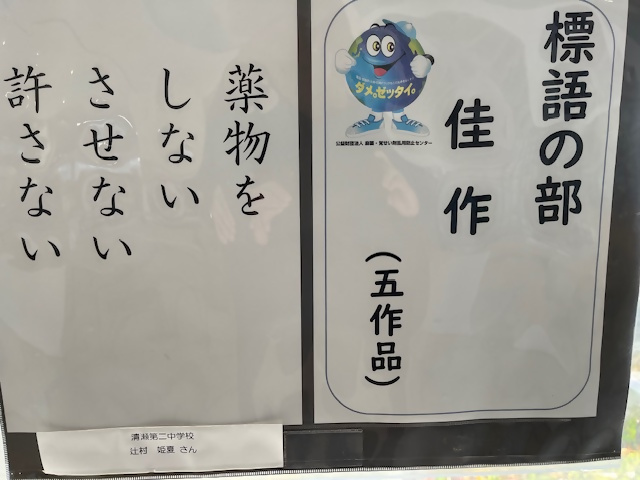 標語の部
佳作
(五作品)
ダメ。ゼッタイ。
公益財団法人 麻薬・覚せい剤乱用防止センター
薬物を
しない
させない
許さない
清瀬第二中学校
辻村 姫夏 さん